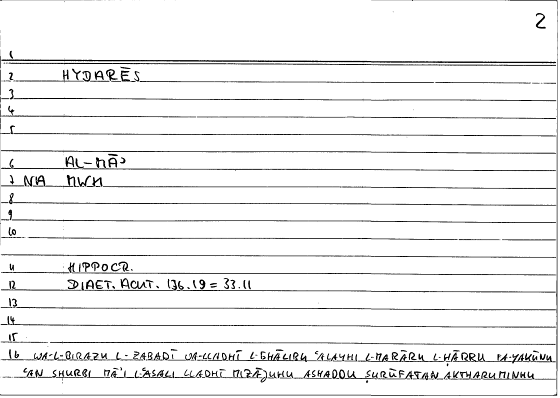 2
1
2 HYDARĒS
3
4
5
6 AL-MĀʾ
7 NA MWH
8
9
10
11 HIPPOCR.
12 DIAET. ACUT. 136.19 = 33.11
13
14
15
16 WA-L-BIRĀZU L-ZABADĪ WA-LLADHĪ L-GHĀLIBU ʿALAYHI L-MARĀRU L-ḤĀRRU FA-YAKŪNU
ʿAN SHURBI MĀʾI L-ʿASALI LLADHĪ MIZĀJUHU ASHADDU ṢURŪFATAN AKTHARU MINHU